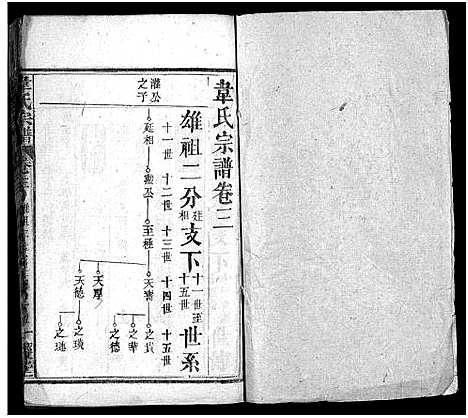 韋氏宗譜卷三
雄祖二分廷相支下十一世至十五世世系
十一世 十二世 十三世 十四世 十五世
灌公之子
廷相 勳公 至極 天壽 之貴
之華
之德
天厚
天德 之璜
之璉
韋氏宗譜 卷三